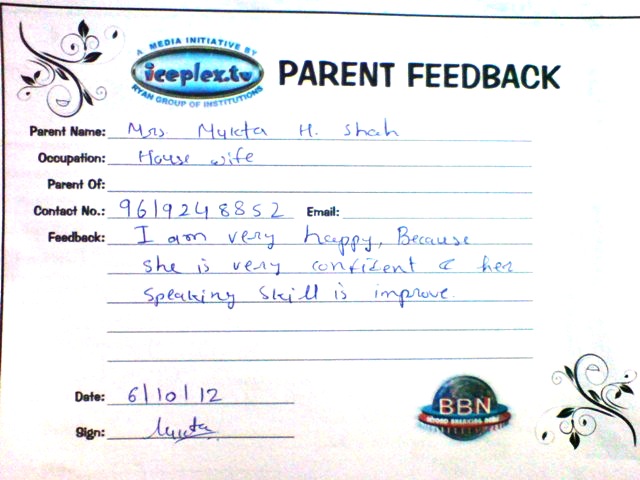 A MEDIA INITIATIVE BY
iceplex.tv
RYAN GROUP OF INSTITUTIONS
PARENT FEEDBACK
Parent Name: Mrs Mukta H. Shah
Occupation: House wife
Parent Of:
Contact No.: 9619248852 Email:
Feedback: I am very happy, Because
she is very confident & her
speaking skill is improve.
Date: 6/10/12
Sign: Mukta
BBN
BEYOND BREAKING NEWS